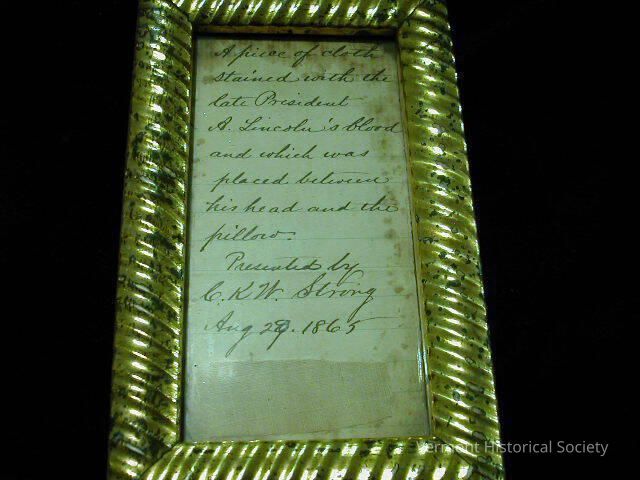 A piece of cloth
stained with the
late President
A. Lincoln's blood
and which was
placed between
his head and the
pillow.
Presented by
C. K. W. Strong
Aug 29. 1865
Vermont Historical Society